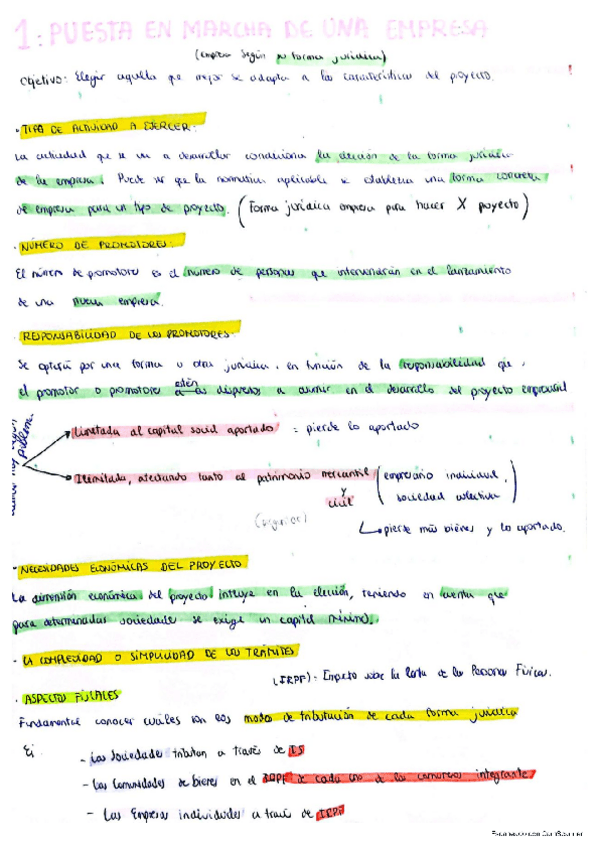 1: PUESTA EN MARCHA DE UNA EMPRESA
(empresa según su forma jurídica)
Objetivo: Elegir aquella que mejor se adapta a las características del proyecto.
· TIPO DE ACTIVIDAD A EJERCER:
La actividad que se va a desarrollar condiciona la elección de la forma jurídica
de la empresa. Puede ser que la normativa aplicable se establezca una forma concreta
de empresa para un tipo de proyecto. (Forma jurídica empresa para hacer X proyecto)
· NÚMERO DE PROMOTORES:
El número de promotores es el número de personas que intervendrán en el lanzamiento
de una nueva empresa.
· RESPONSABILIDAD DE LOS PROMOTORES:
Se optará por una forma u otra jurídica, en función de la responsabilidad que
el promotor o promotores estén dispuestos a asumir en el desarrollo del proyecto empresarial
problema.
Limitada al capital social aportado = pierde lo aportado
Ilimitada, afectando tanto al patrimonio mercantil (empresario individual,
y civil sociedad colectiva)
pierde más bienes y lo aportado.
· NECESIDADES ECONÓMICAS DEL PROYECTO
La dimensión económica del proyecto influye en la elección, teniendo en cuenta que
para determinadas sociedades se exige un capital mínimo.
· LA COMPLEJIDAD O SIMPLICIDAD DE LOS TRÁMITES
(IRPF): Impuesto sobre la Renta de las Personas Físicas.
· ASPECTOS FISCALES
Fundamental conocer cuáles son los modos de tributación de cada forma jurídica
Ej:
- Las Sociedades tributan a través de IS
- Las Comunidades de bienes en el IRPF de cada uno de los comuneros integrantes
- Las Empresas individuales a través de IRPF
Escaneado con CamScanner